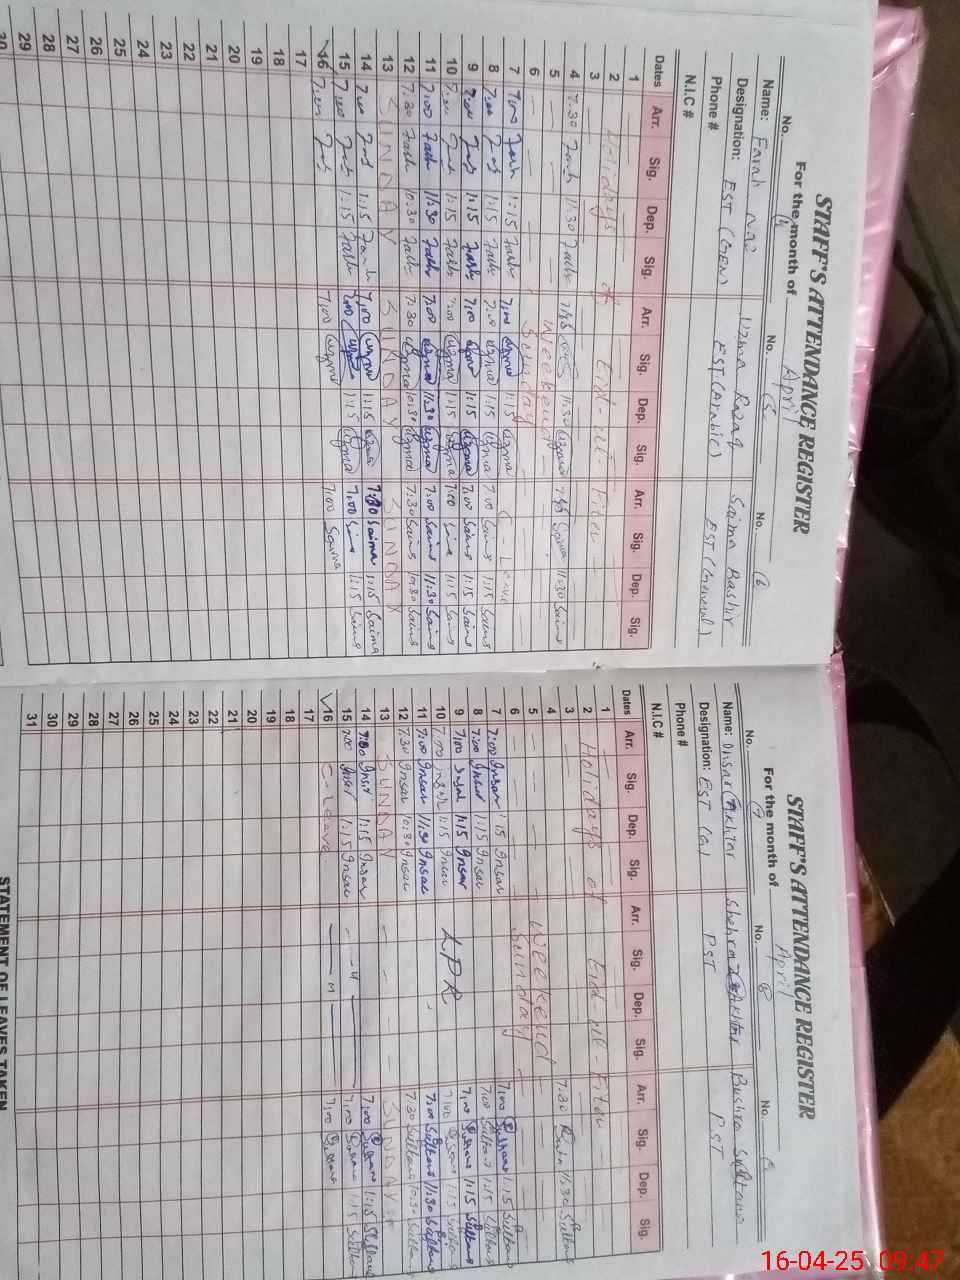 STAFF'S ATTENDANCE REGISTER
For the month of April
No. 4 No. 5 No. 6
Name: Farah Naz Uzma Razaq Saima Bashir
Designation: EST (GEN) EST (Arabic) EST (General)
Phone #
N.I.C #
Dates Arr. Sig. Dep. Sig. Arr. Sig. Dep. Sig. Arr. Sig. Dep. Sig.
1
2 Holidays of Eid-ul-Fiter
3
4 7:30 Farah 11:30 Farah 11:30 11:30
5 Weekend
6 Sunday
7 7:00 Farah 1:15 Farah 7:00 Uzma 1:15 Uzma C-Leave
8 7:00 1:15 Farah 7:00 Uzma 1:15 Uzma 7:00 Saima 1:15 Saima
9 7:00 1:15 Farah 7:00 Uzma 1:15 Uzma 7:00 Saima 1:15 Saima
10 7:00 1:15 Farah 7:00 Uzma 1:15 Uzma 7:00 Saima 1:15 Saima
11 7:00 Farah 11:30 Farah 7:00 Uzma 11:30 Uzma 7:00 Saima 11:30 Saima
12 7:30 Farah 10:30 Farah 7:30 Uzma 10:30 Uzma 7:30 Saima 10:30 Saima
13 SUNDAY SUNDAY SUNDAY
14 7:00 1:15 Farah 7:00 Uzma 1:15 Uzma 7:30 Saima 1:15 Saima
15 7:00 1:15 Farah 7:00 Uzma 1:15 Uzma 7:00 Saima 1:15 Saima
16 7:00 7:00 Uzma 7:00 Saima
17
18
19
20
21
22
23
24
25
26
27
28
29
30
STAFF'S ATTENDANCE REGISTER
For the month of April
No. 7 No. 8 No.
Name: Insar Akhtar Shehnaz Akhtar Bushra Sultana
Designation: EST (G) PST PST
Phone #
N.I.C #
Dates Arr. Sig. Dep. Sig. Arr. Sig. Dep. Sig. Arr. Sig. Dep. Sig.
1
2 Holidays of Eid-ul-Fiter
3
4 7:30 11:30 Sultana
5 Weekend
6 Sunday
7 7:00 Insar 1:15 Insar 7:00 Sultana 1:15 Sultana
8 7:00 Insar 1:15 Insar 7:00 Sultana 1:15 Sultana
9 7:00 Insar 1:15 Insar LPR 7:00 Sultana 1:15 Sultana
10 7:00 Insar 1:15 Insar 7:00 Sultana 1:15 Sultana
11 7:00 Insar 11:30 Insar 7:00 Sultana 11:30 Sultana
12 7:30 Insar 10:30 Insar 7:30 Sultana 10:30 Sultana
13 SUNDAY SUNDAY
14 7:30 Insar 1:15 Insar 7:00 Sultana 1:15 Sultana
15 7:00 Insar 1:15 Insar 7:00 Sultana 1:15 Sultana
16 C-Leave 7:00 Sultana
17
18
19
20
21
22
23
24
25
26
27
28
29
30
31
STATEMENT OF LEAVES TAKEN
16-04-25 09:47